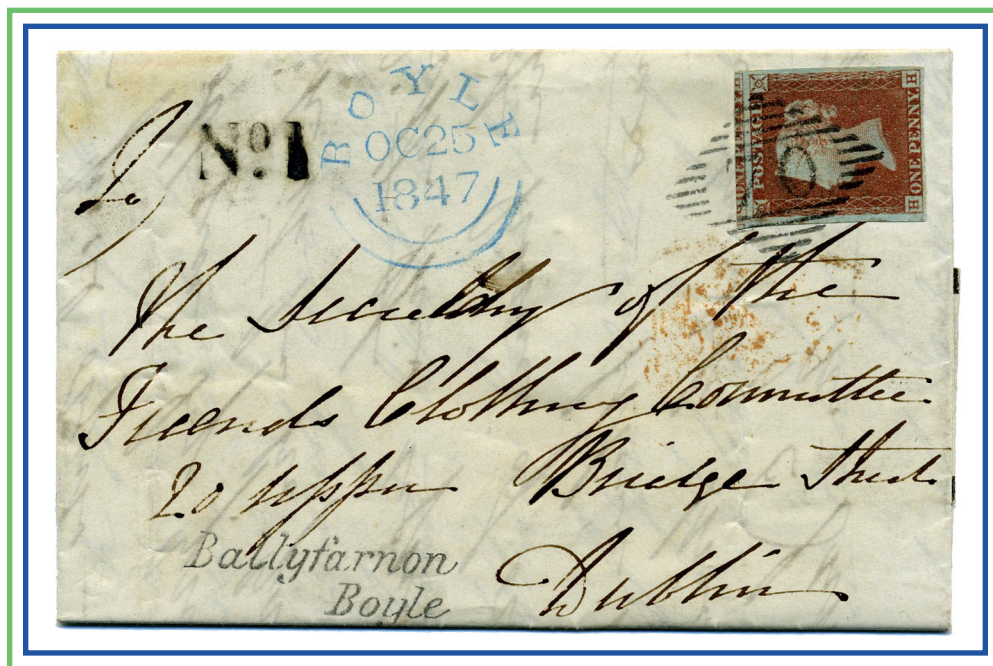 BOYLE
OC25
1847
No. 1
POSTAGE
ONE PENNY
H H
To
The Secretary of the
Friends Clothing Committee
20 upper Bridge Street
Dublin
Ballyfarnon
Boyle